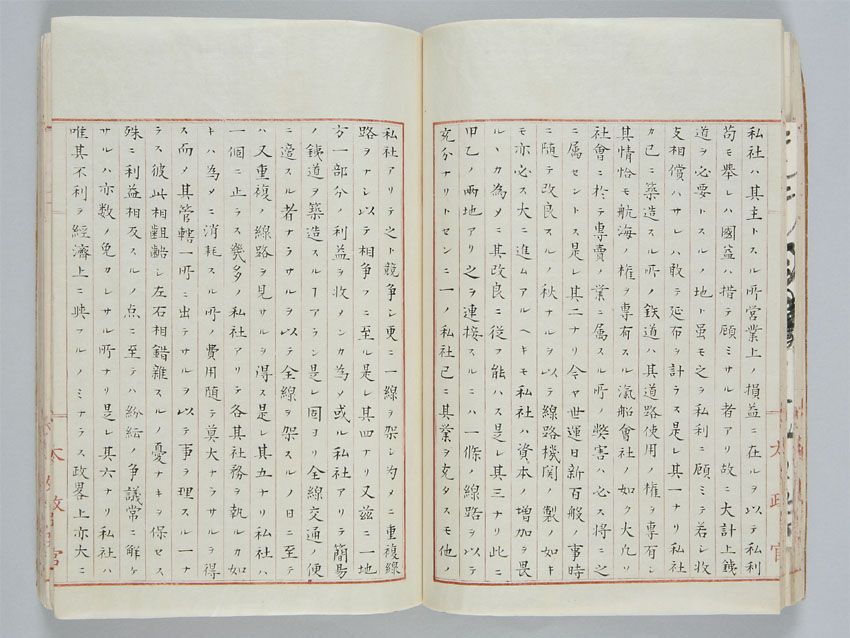 私社ハ其主トスル所營業上ノ損益ニ在ルヲ以テ私利
苟モ擧レハ國益ハ措テ顧ミサル者アリ故ニ大計上鉄
道ヲ必要トスルノ地ト雖モ之ヲ私利ニ顧ミテ若シ收
支相償ハサレハ敢テ延布ヲ計ラス是レ其一ナリ私社
カ已ニ築造スル所ノ鉄道ハ其道路使用ノ權ヲ専有シ
其情恰モ航海ノ權ヲ専有スル滊船會社ノ如ク大凡ソ
社會ニ於テ專賣ノ業ニ属スル所ノ獘害ハ必ス將ニ之
ニ属セントス是レ其二ナリ今ヤ世運日新百般ノ事時
ニ随テ改良スルノ秋ナルヲ以テ線路機関ノ製ノ如キ
モ亦必ス大ニ進ムアルヘキモ私社ハ資本ノ増加ヲ畏
ルヽカ為メニ其改良ニ從フ能ハス是レ其三ナリ此ニ
甲乙ノ兩地アリ之ヲ連接スルニハ一條ノ線路ヲ以テ
充分ナリトセンニ一ノ私社已ニ其業ヲ克タスモ他ノ
太政官
私社アリテ之ト競争シ更ニ一線ヲ架シ為メニ重複線
路ヲナシ以テ相争フニ至ル是レ其四ナリ又茲ニ一地
方一部分ノ利益ヲ收メンカ為メ或ル私社アリテ簡易
ノ鉄道ヲ築造スルヿアラン是レ固ヨリ全線交通ノ便
ニ適スル者ナラサルヲ以テ全線ヲ架スルノ日ニ至テ
ハ又重複ノ線路ヲ見サルヲ得ス是レ其五ナリ私社ハ
一個ニ止ラス幾多ノ私社アリテ各其社務ヲ執ルカ如
キハ為メニ消耗スル所ノ費用随テ莫大ナラサルヲ得
ス而ノ其管轄一所ニ出テサルヲ以テ事ヲ理スル一ナ
ラス彼此相齟齬シ左右相錯雜スルノ憂ナキヲ保セス
殊ニ利益相及スルノ点ニ至テハ紛紜ノ争議常ニ解ケ
サルハ亦数ノ免カレサル所ナリ是レ其六ナリ私社ハ
唯其不利ヲ經濟上ニ映フルノミナラス政畧上亦大ニ
太政官